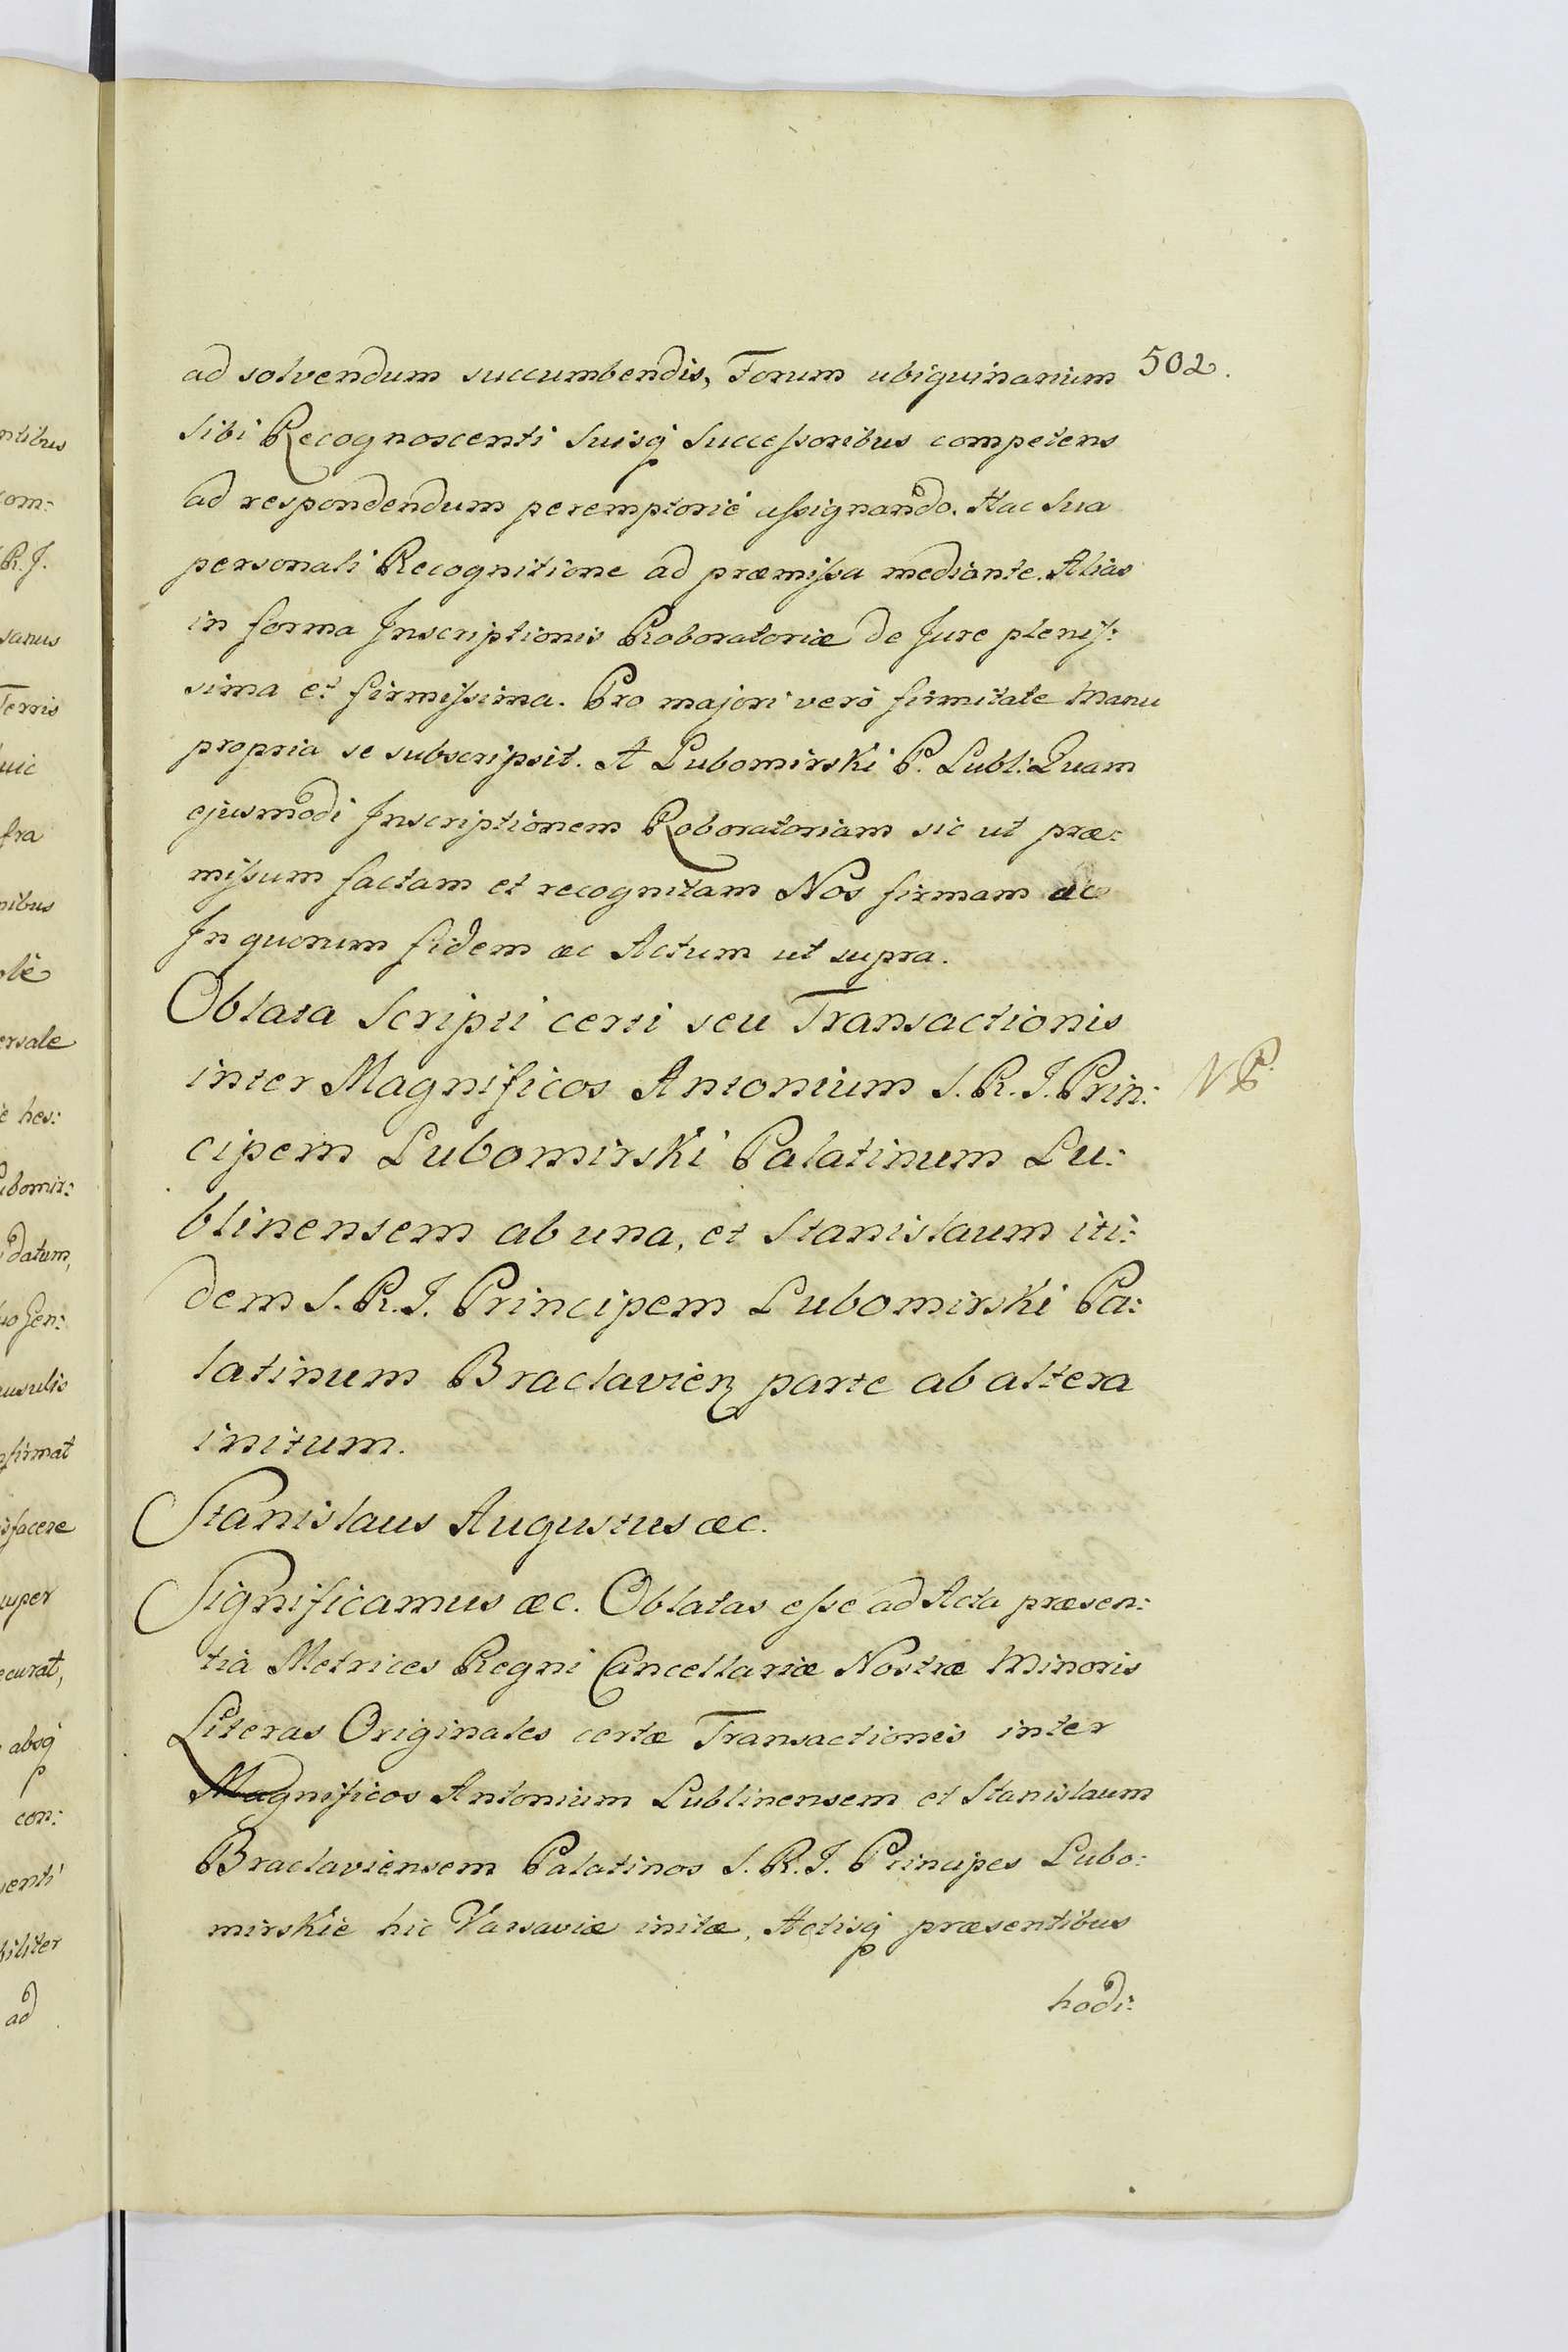 502.
ad solvendum succumbendis, Forum ubiquinarium
sibi Recognoscenti suisq́ Successoribus competens
ad respondendum peremptoriè assignando. Hac Sua
personali Recognitione ad præmissa mediante. Alias
in forma Inscriptionis Roboratoriæ de Jure plenis:
sima et firmissima. Pro majori verò firmitate Manu
propria se subscripsit. A Lubomirski P. Lubl: Quam
ejusmodi Inscriptionem Roboratoriam sic ut præ:
missum factam et recognitam Nos firmam æc
In quorum fidem æc Actum ut supra.
Oblata Scripti certi seu Transactionis
inter Magnificos Antonium S. R. I. Prin:
cipem Lubomirski Palatinum Lu:
blinensem ab una, et Stanislaum iti:
dem S. R. I. Principem Lubomirski Pa:
latinum Braclavien parte ab altera
initum.
Stanislaus Augustus æc.
Significamus æc. Oblatas esse ad Acta præsen:
tia Metrices Regni Cancellariæ Nostræ Minoris
Literas Originales certæ Transactionis inter
Magnificos Antonium Lublinensem et Stanislaum
Braclaviensem Palatinos S. R. I. Principes Lubo:
mirskie hic Varsaviæ initæ, Actisq́ præsentibus
hodi:
ntibus
com:
R. J.
sanus
Terris
fra
nibus
ersale
è hes:
ubomir:
datum,
usulis
firmat
sfacere
super
ecurat,
absq́
con:
enti
biliter
ad